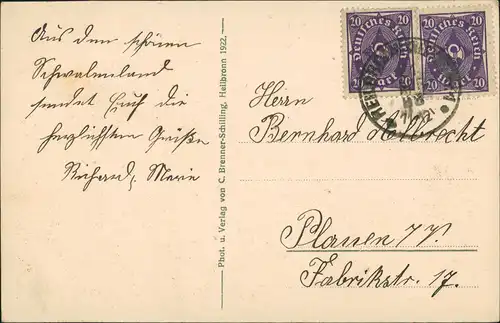 Aus dem schönen
Schwabenland
sendet Euch die
herzlichsten Grüße
Richard, Marie
Phot. u. Verlag von C. Brenner-Schilling, Heilbronn 1922.
20 Deutsches Reich 20
20 Deutsches Reich 20
20 20
20 20
Herrn
Bernhard Albrecht
Plauen i/V.
Fabrikstr. 17.